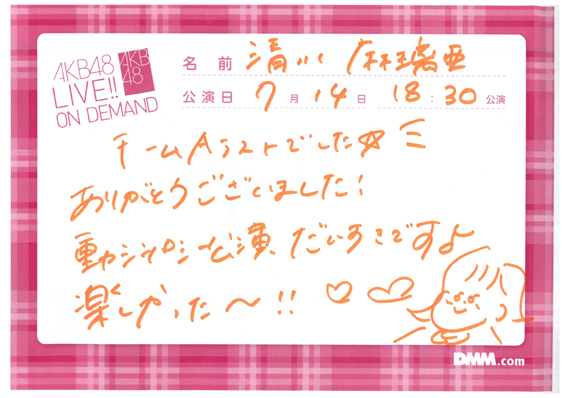 AKB48
LIVE!!
ON DEMAND
AKB
48
名前 清川 麻璃亜
公演日 7月14日 18:30公演
チームAラストでした☆
ありがとうございました!
重力シンパシー公演、だいすきですよ
楽しかった〜!! ♡♡
DMM.com